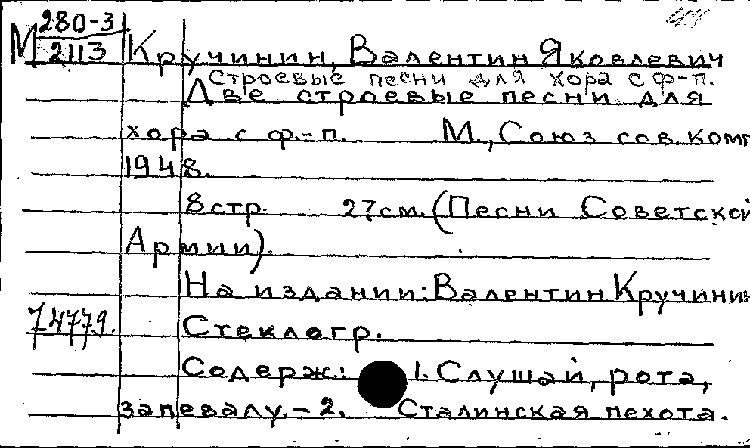 М 280-3
2113
Кручинин, Валентин Яковлевич
Строевые песни для хора с ф-п.
Две строевые песни для
хора с ф.-п. М., Союз сов. комп
1948.
8 стр. 27 см. (Песни Советской
Армии).
На издании: Валентин Кручинин
74779.
Стеклогр.
Содерж: 1. Слушай, рота,
запевалу. - 2. Сталинская пехота.